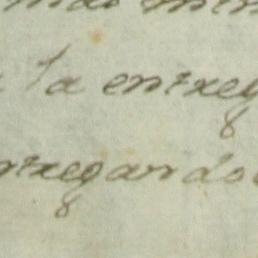 la entreg
ntregando